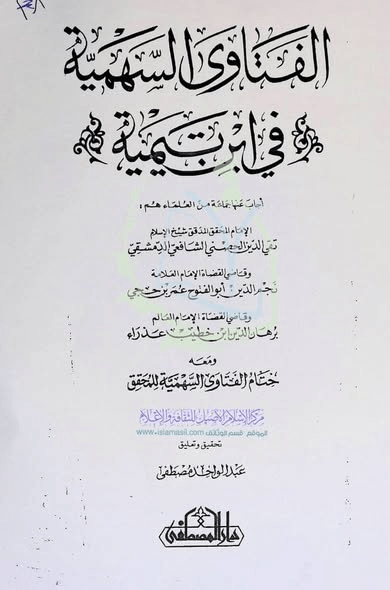 الفتاوى السهمية
في ابن تيمية
أجاب عنها جماعة من العلماء هم :
الإمام المحقق المدقق شيخ الإسلام
تقي الدين الحصني الشافعي الدمشقي
وقاضي القضاة الإمام العلامة
نجم الدين أبو الفتوح عمر بن حجي
وقاضي القضاة الإمام العالم
برهان الدين ابن خطيب عذراء
ومعه
ختام الفتاوى السهمية للمحقق
مركز الإسلام الأصيل للثقافة والإعلام
الموقع قسم الوثائق www.islamasil.com
تحقيق وتعليق
عبد الواحد مصطفى
دار المصطفى